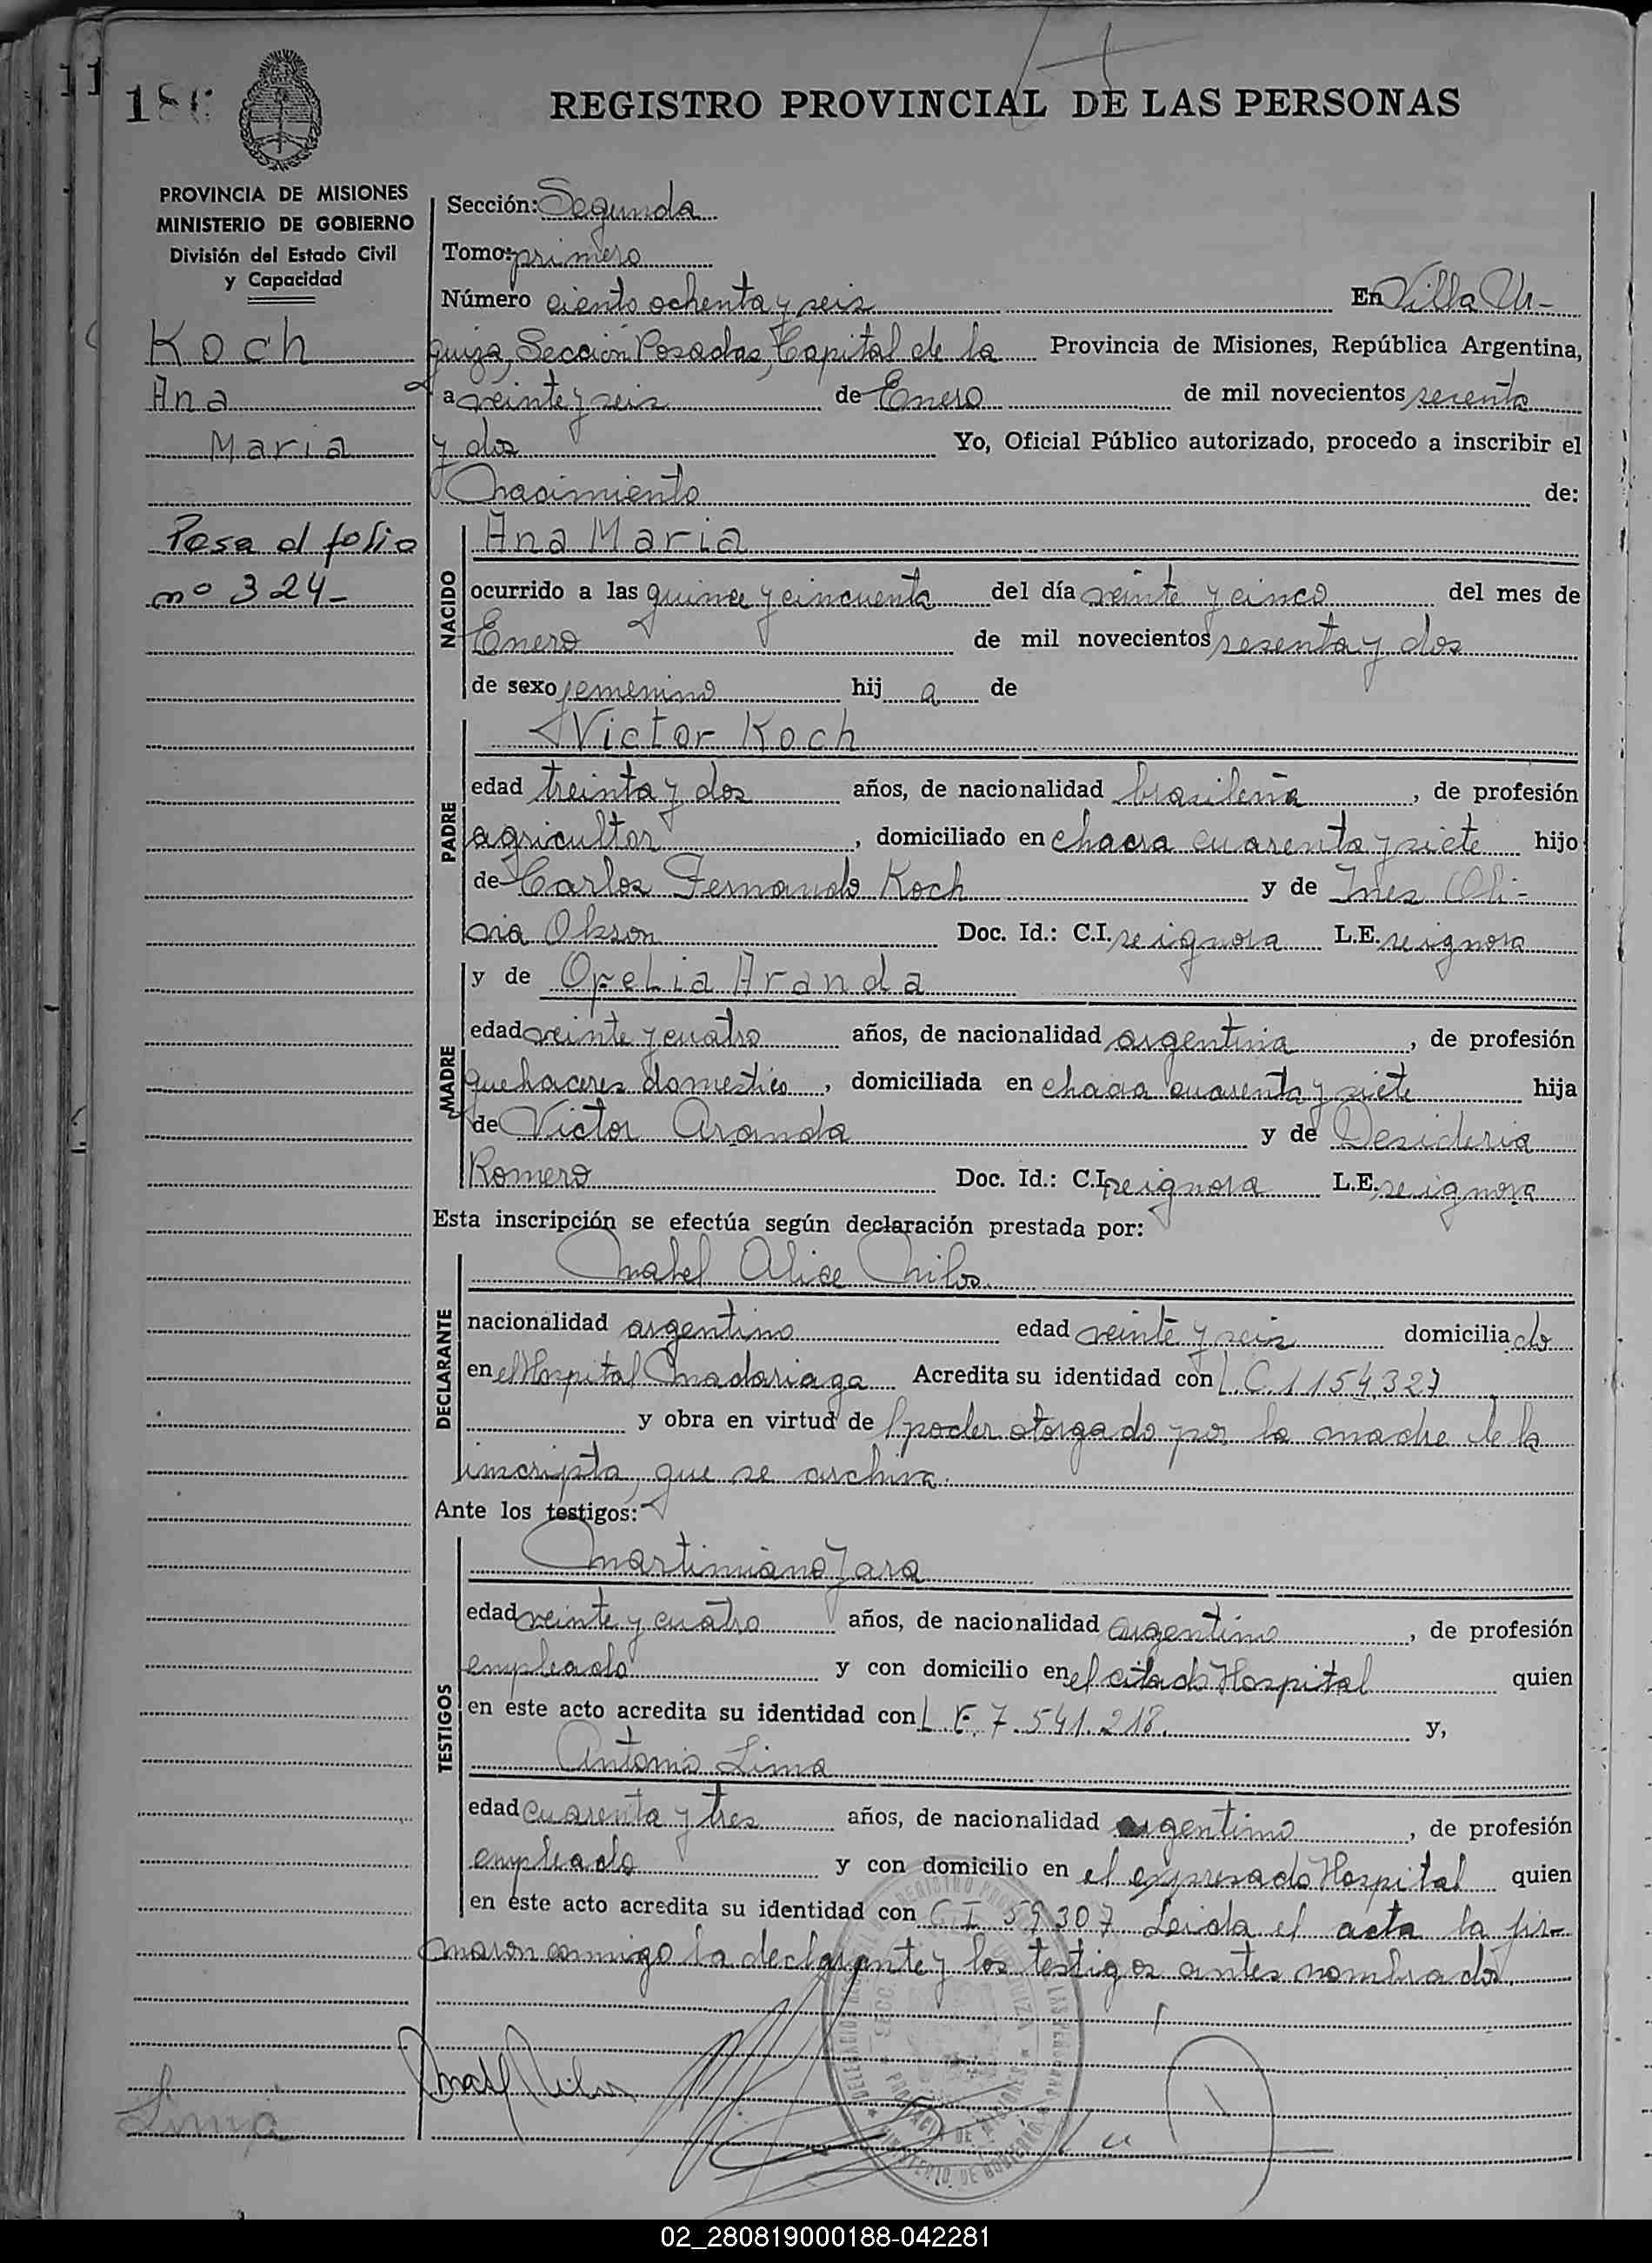 186
REGISTRO PROVINCIAL DE LAS PERSONAS
PROVINCIA DE MISIONES
MINISTERIO DE GOBIERNO
División del Estado Civil
y Capacidad
Koch
Ana
Maria
Pasa al folio
nº 324-
Sección: Segunda
Tomo: primero
Número ciento ochenta y seis En Villa Ur-
quiza, Sección Posadas, Capital de la Provincia de Misiones, República Argentina,
a veinte y seis de Enero de mil novecientos sesenta
y dos Yo, Oficial Público autorizado, procedo a inscribir el
Nacimiento de:
NACIDO
Ana Maria
ocurrido a las quince y cincuenta del día veinte y cinco del mes de
Enero de mil novecientos sesenta y dos
de sexo femenino hij a de
PADRE
Victor Koch
edad treinta y dos años, de nacionalidad brasileña, de profesión
agricultor, domiciliado en chacra cuarenta y siete hijo
de Carlos Fernando Koch y de Ines Oli-
via Olsson Doc. Id.: C.I. se ignora L.E. se ignora
MADRE
y de Ofelia Aranda
edad veinte y cuatro años, de nacionalidad argentina, de profesión
quehaceres domestico, domiciliada en chacra cuarenta y siete hija
de Victor Aranda y de Desideria
Romero Doc. Id.: C.I. se ignora L.E. se ignora
Esta inscripción se efectúa según declaración prestada por:
DECLARANTE
Mabel Alice
nacionalidad argentino edad veinte y seis domiciliado
en el Hospital Madariaga Acredita su identidad con L.C. 1154327
y obra en virtud de poder otorgado por la madre de la
inscripta, que se archiva.
Ante los testigos:
TESTIGOS
Martimiano Jara
edad veinte y cuatro años, de nacionalidad argentino, de profesión
empleado y con domicilio en el citado Hospital quien
en este acto acredita su identidad con L E. 7.541.218. y,
Antonio Lima
edad cuarenta y tres años, de nacionalidad argentino, de profesión
empleado y con domicilio en el expresado Hospital quien
en este acto acredita su identidad con C I 59307 Leida el acta la fir-
maron conmigo la declarante y los testigos antes nombrados.
02_280819000188-042281